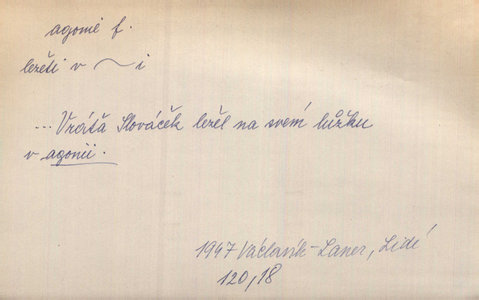 agonie f.
ležeti v ~ i
... Vzóřa Slováček ležel na svém lůžku
v agonii.
1947 Václavík-Laner, Lidé
120,18